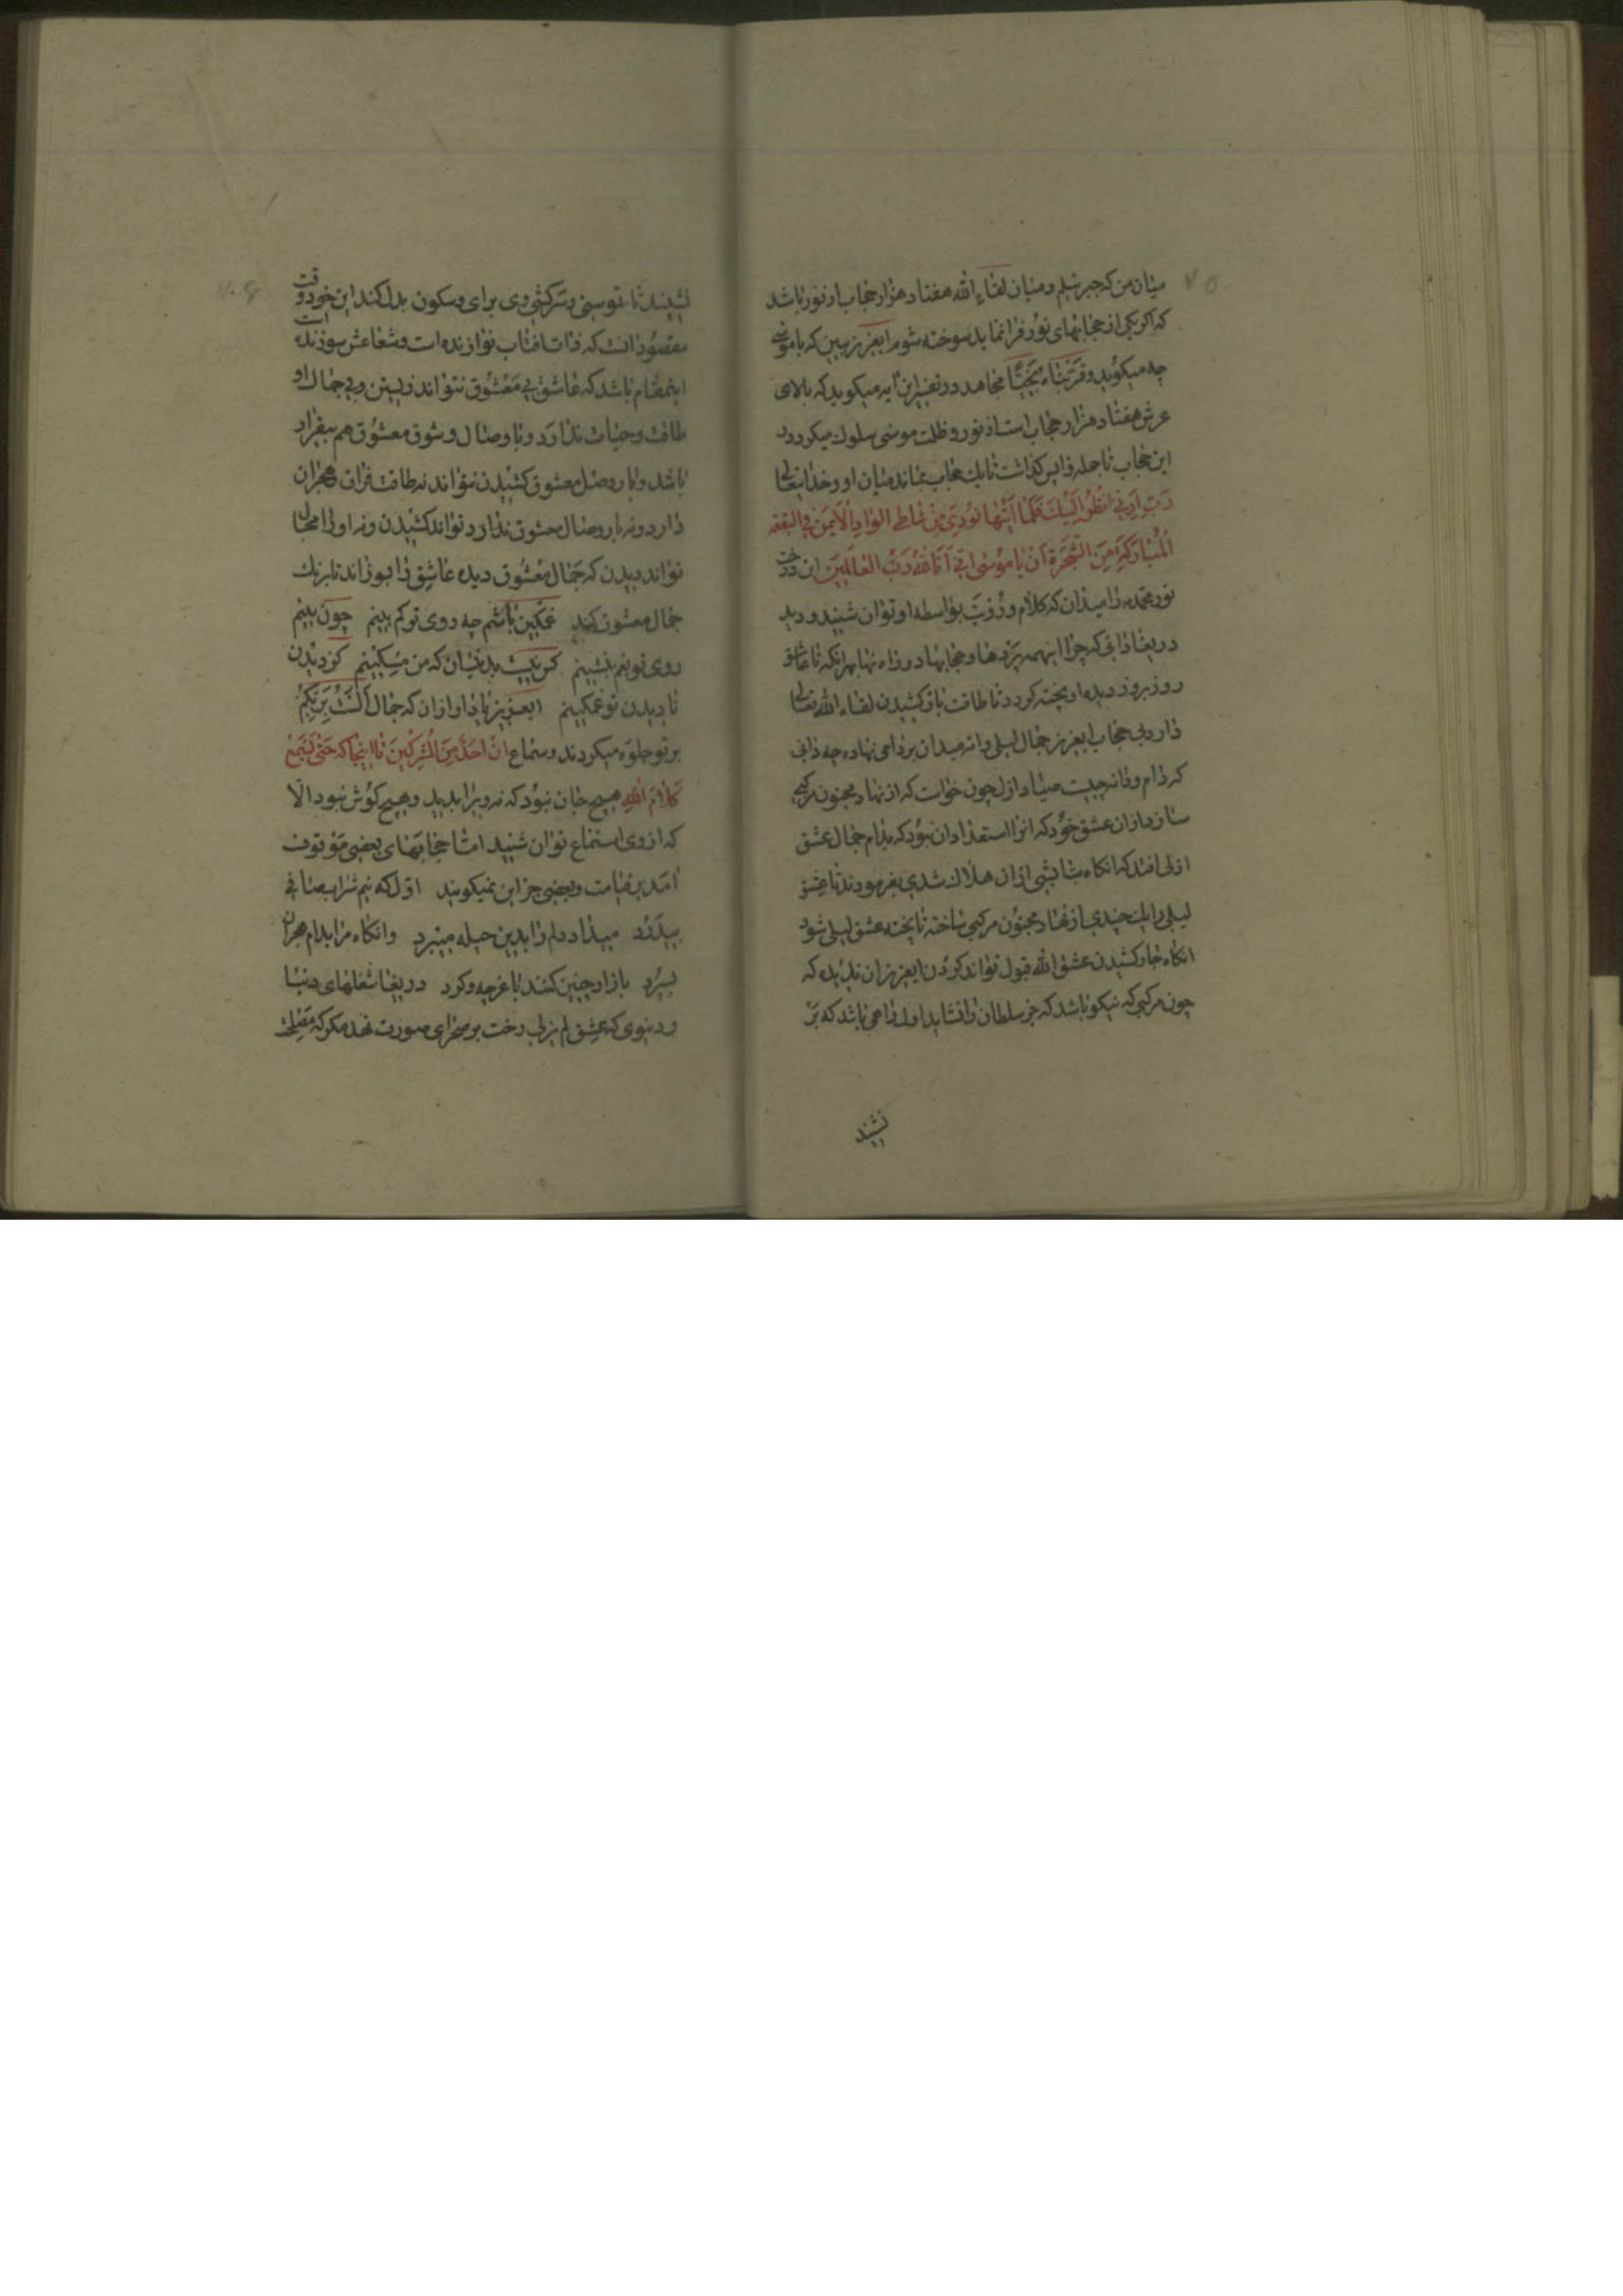 میان من که جبرئیلم و میان لقاء الله هفتاد هزار حجابست از نور باشد
که اگر یکی از حجابهای نور فرا نماید سوخته شوم ایعزیز ببین که با موسی
چه میگوید وقربناه نجیا مجاهد در تفسیر این آیه میگوید که بالای
عرش هفتاد هزار حجاب است از نور و ظلمت موسی سلوک میکرد در
این حجاب تا جمله واپس گذاشت تا یک حجاب بماند میان او و خدایتعالی
رب ارنی انظر الیک فلما اتیها نودی من شاطی الواد الایمن فی البقعه
المبارکة من الشجرة ان یا موسی انی انا الله رب العالمین این درخت
نور محمد را میدان که کلام و رؤیت بواسطه او توان شنید و دید
دریغا دانی که چرا اینهمه پردها و حجابها در راه نهاد بهرانکه تا عاشق
روز بروز دیده او پخته گردد تا طاقت بار کشیدن لقاء الله تعالی
دارد بی حجاب ایعزیز جمال لیلی دانه میدان بر دامی نهاده چه دانی
که دام و دانه چیست صیاد ازل چون خواست که از نهاد مجنون مرکبی
سازد از ان عشق خود که انرا استعداد ان نبود که بدام جمال عشق
ازلی افتد که انگاه بتابشی از ان هلاک شدی بفرمودند تا عشق
لیلی را یک چندی از نهاد مجنون مرکبی ساخته تا پخته عشق لیلی شود
انگاه بار کشیدن عشق الله قبول تواند کردن ایعزیز ان ندیده که
چون مرکبی که نیکو باشد که جز سلطان را نشاید اول رایضی باشد که بر
نشیند
نشیند تا توسنی و سرکشی وی برای و سکون بدل کند این خود رفت
مقصود انست که ذات افتاب نوازنده است و شعاعش سوزنده است
اینمقام باشد که عاشق بی معشوق نتواند زیستن و بی جمال او
طاقت و حیات ندارد و با وصال و شوق معشوق هم بیقرار
باشد و بار وصل معشوق کشیدن نتواند نه طاقت فراق و هجران
دارد و نه بار وصال معشوق ندارد تواند کشیدن و نه او را مجال
تواند دیدن که جمال معشوق دیده عاشق را بسوزاند تا برنک
جمال معشوق کند غمگین باشم چه روی تو کم بینم چون بینم
روی تو بغم بنشینم کس نیست بدینسان که من مسکینم کز دیدن
نادیدن تو غمگینم ایعزیز یاد آر از ان که جمال الست بربکم
بر تو جلوه میکردند و سماع ان احد من المشرکین تا اینجا که حتی یسمع
کلام الله هیچ جان نبود که نه ویرا بدید و هیچ گوش نبود الا
که از وی استماع توان شنید اما حجابهای بعضی موقوف
امد بر قیامت و بعضی جز این نمیگویند اول که نیم شراب صافی
بیدرد میداد دلم را بدین حیله میبرد وانگاه مرا بدام هجران
سپرد بازار چنین کنند با غرچه و کرد دریغا شغلهای دنیا
و دنیوی که عشق لم یزلی رخت بر صحرای صورت نهد مگر که مصلحت